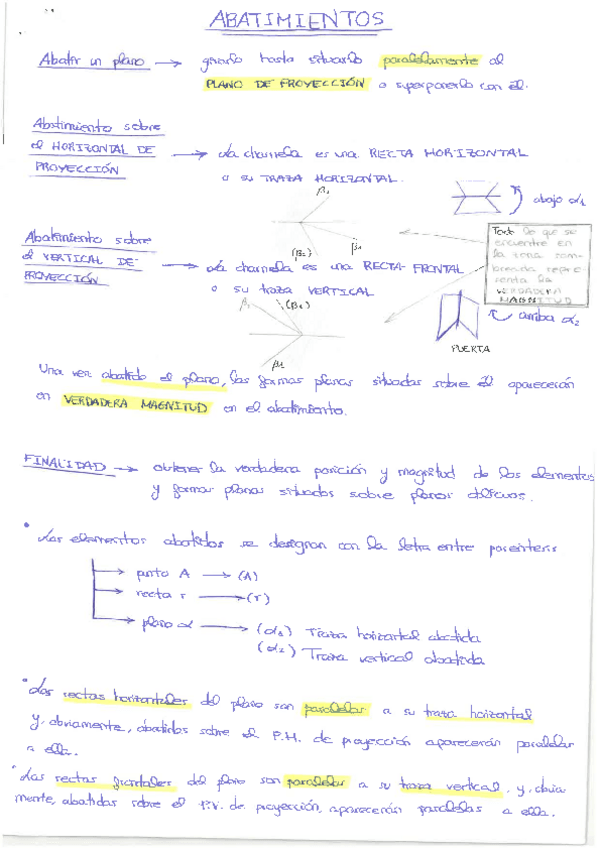 ABATIMIENTOS
Abatir un plano → girarlo hasta situarlo paralelamente al
PLANO DE PROYECCIÓN o superponerlo con él.
Abatimiento sobre
el HORIZONTAL DE
PROYECCIÓN
→ La charnela es una RECTA HORIZONTAL
o su TRAZA HORIZONTAL.
β₂
abajo α₁
(β₂)
β₁
Todo lo que se
encuentre en
la zona som-
breada repre-
senta la
VERDADERA
MAGNITUD
Abatimiento sobre
el VERTICAL DE
PROYECCIÓN
→ La charnela es una RECTA FRONTAL
o su traza VERTICAL
arriba α₂
PUERTA
β₁
Una vez abatido el plano, las formas planas situadas sobre él aparecerán
en VERDADERA MAGNITUD en el abatimiento.
FINALIDAD → obtener la verdadera posición y magnitud de los elementos
y formas planas situados sobre planos oblicuos.
• Los elementos abatidos se designan con la letra entre paréntesis
→ punto A → (A)
→ recta r → (r)
→ plano α → (α₁) Traza horizontal abatida
(α₂) Traza vertical abatida
• Las rectas horizontales del plano son paralelas a su traza horizontal
y, obviamente, abatidas sobre el P.H. de proyección aparecerán paralelas
a ella.
• Las rectas frontales del plano son paralelas a su traza vertical, y, obvia
mente, abatidas sobre el P.V. de proyección, aparecerán paralelas a ella.